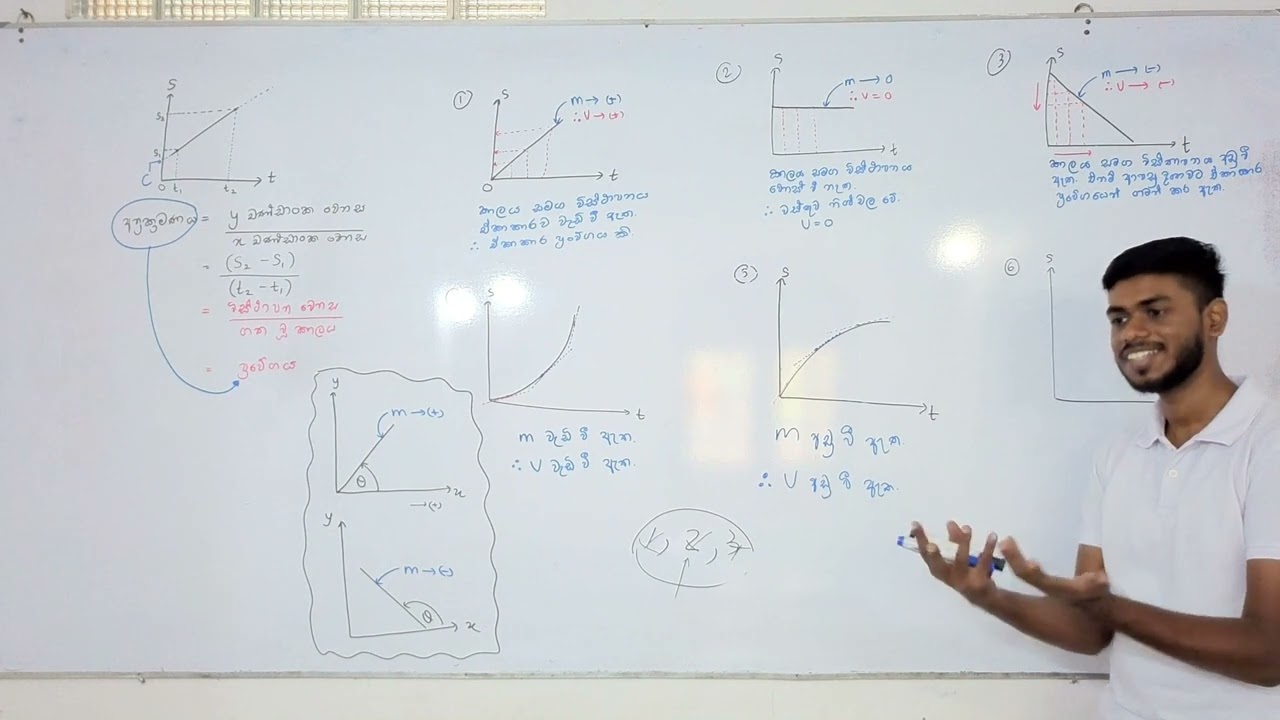 S
S₂
S₁
C
O t₁ t₂ t
අනුක්‍රමණය = y ඛණ්ඩාංක වෙනස
x ඛණ්ඩාංක වෙනස
= (S₂ - S₁)
(t₂ - t₁)
= විස්ථාපන වෙනස
ගත වූ කාලය
= ප්‍රවේගය
y
m → (+)
θ
x
→ (+)
y
m → (-)
θ
x
①
S
m → (+)
∴ V → (+)
O
t
කාලය සමග විස්ථාපනය
ඒකාකාරව වැඩි වී ඇත.
∴ ඒකාකාර ප්‍රවේගය කි.
②
S
m → 0
∴ V = 0
t
කාලය සමග විස්ථාපනය
වෙනස් වී නැත.
∴ වස්තුව නිශ්චල වේ.
V = 0
③
S
m → (-)
∴ V → (-)
t
කාලය සමග විස්ථාපනය අඩු වී
ඇත. එනම් ආපසු දිශාවට ඒකාකාර
ප්‍රවේගයෙන් ගමන් කර ඇත.
S
t
m වැඩි වී ඇත.
∴ V වැඩි වී ඇත.
⑤
S
t
m අඩු වී ඇත.
∴ V අඩු වී ඇත.
⑥
S
1, 2, 3